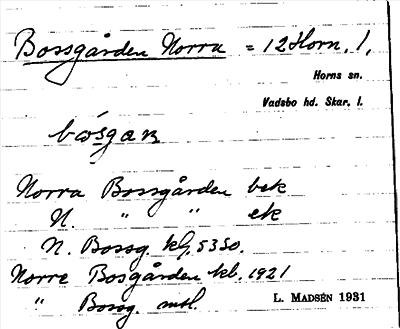 Bossgården Norra = 12 Horn, 1,
Horns sn.
Vadsbo hd. Skar. l.
Norra Bossgården bek
N. " " ek
N. Bossg. kg, 5350.
Norre Bosgården kl. 1921
" Bossg. mtl.
L. MADSÉN 1931